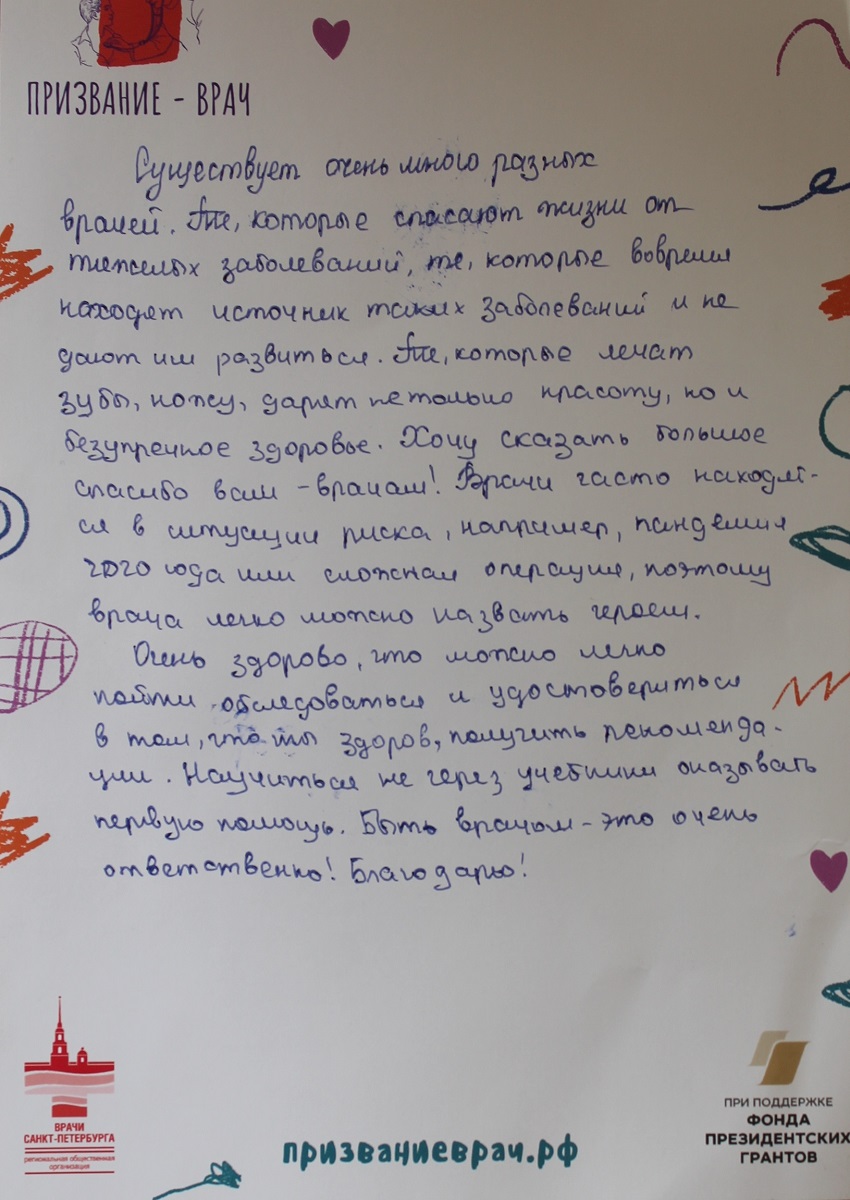 ПРИЗВАНИЕ - ВРАЧ
Существует очень много разных
врачей. Те, которые спасают жизни от
тяжелых заболеваний, те, которые вовремя
находят источник таких заболеваний и не
дают им развиться. Те, которые лечат
зубы, кожу, дарят не только красоту, но и
безупречное здоровье. Хочу сказать большое
спасибо вам - врачам! Врачи часто находят-
ся в ситуации риска, например, пандемия
2020 года или сложная операция, поэтому
врача легко можно назвать героем.
Очень здорово, что можно легко
пойти обследоваться и удостовериться
в том, что ты здоров, получить рекоменда-
ции. Научиться не через учебники оказывать
первую помощь. Быть врачом - это очень
ответственно! Благодарю!
ВРАЧИ
САНКТ-ПЕТЕРБУРГА
региональная общественная
организация
призваниеврач.рф
ПРИ ПОДДЕРЖКЕ
ФОНДА
ПРЕЗИДЕНТСКИХ
ГРАНТОВ